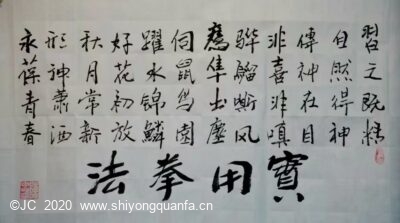 習之既精
自然得神
傳神在目
非喜非嗔
骅騮嘶风
鷹隼出塵
伺鼠烏圓
躍水錦鱗
好花初放
秋月常新
形神蕭洒
永葆青春
實用拳法
©JC 2020 www.shiyongquanfa.cn